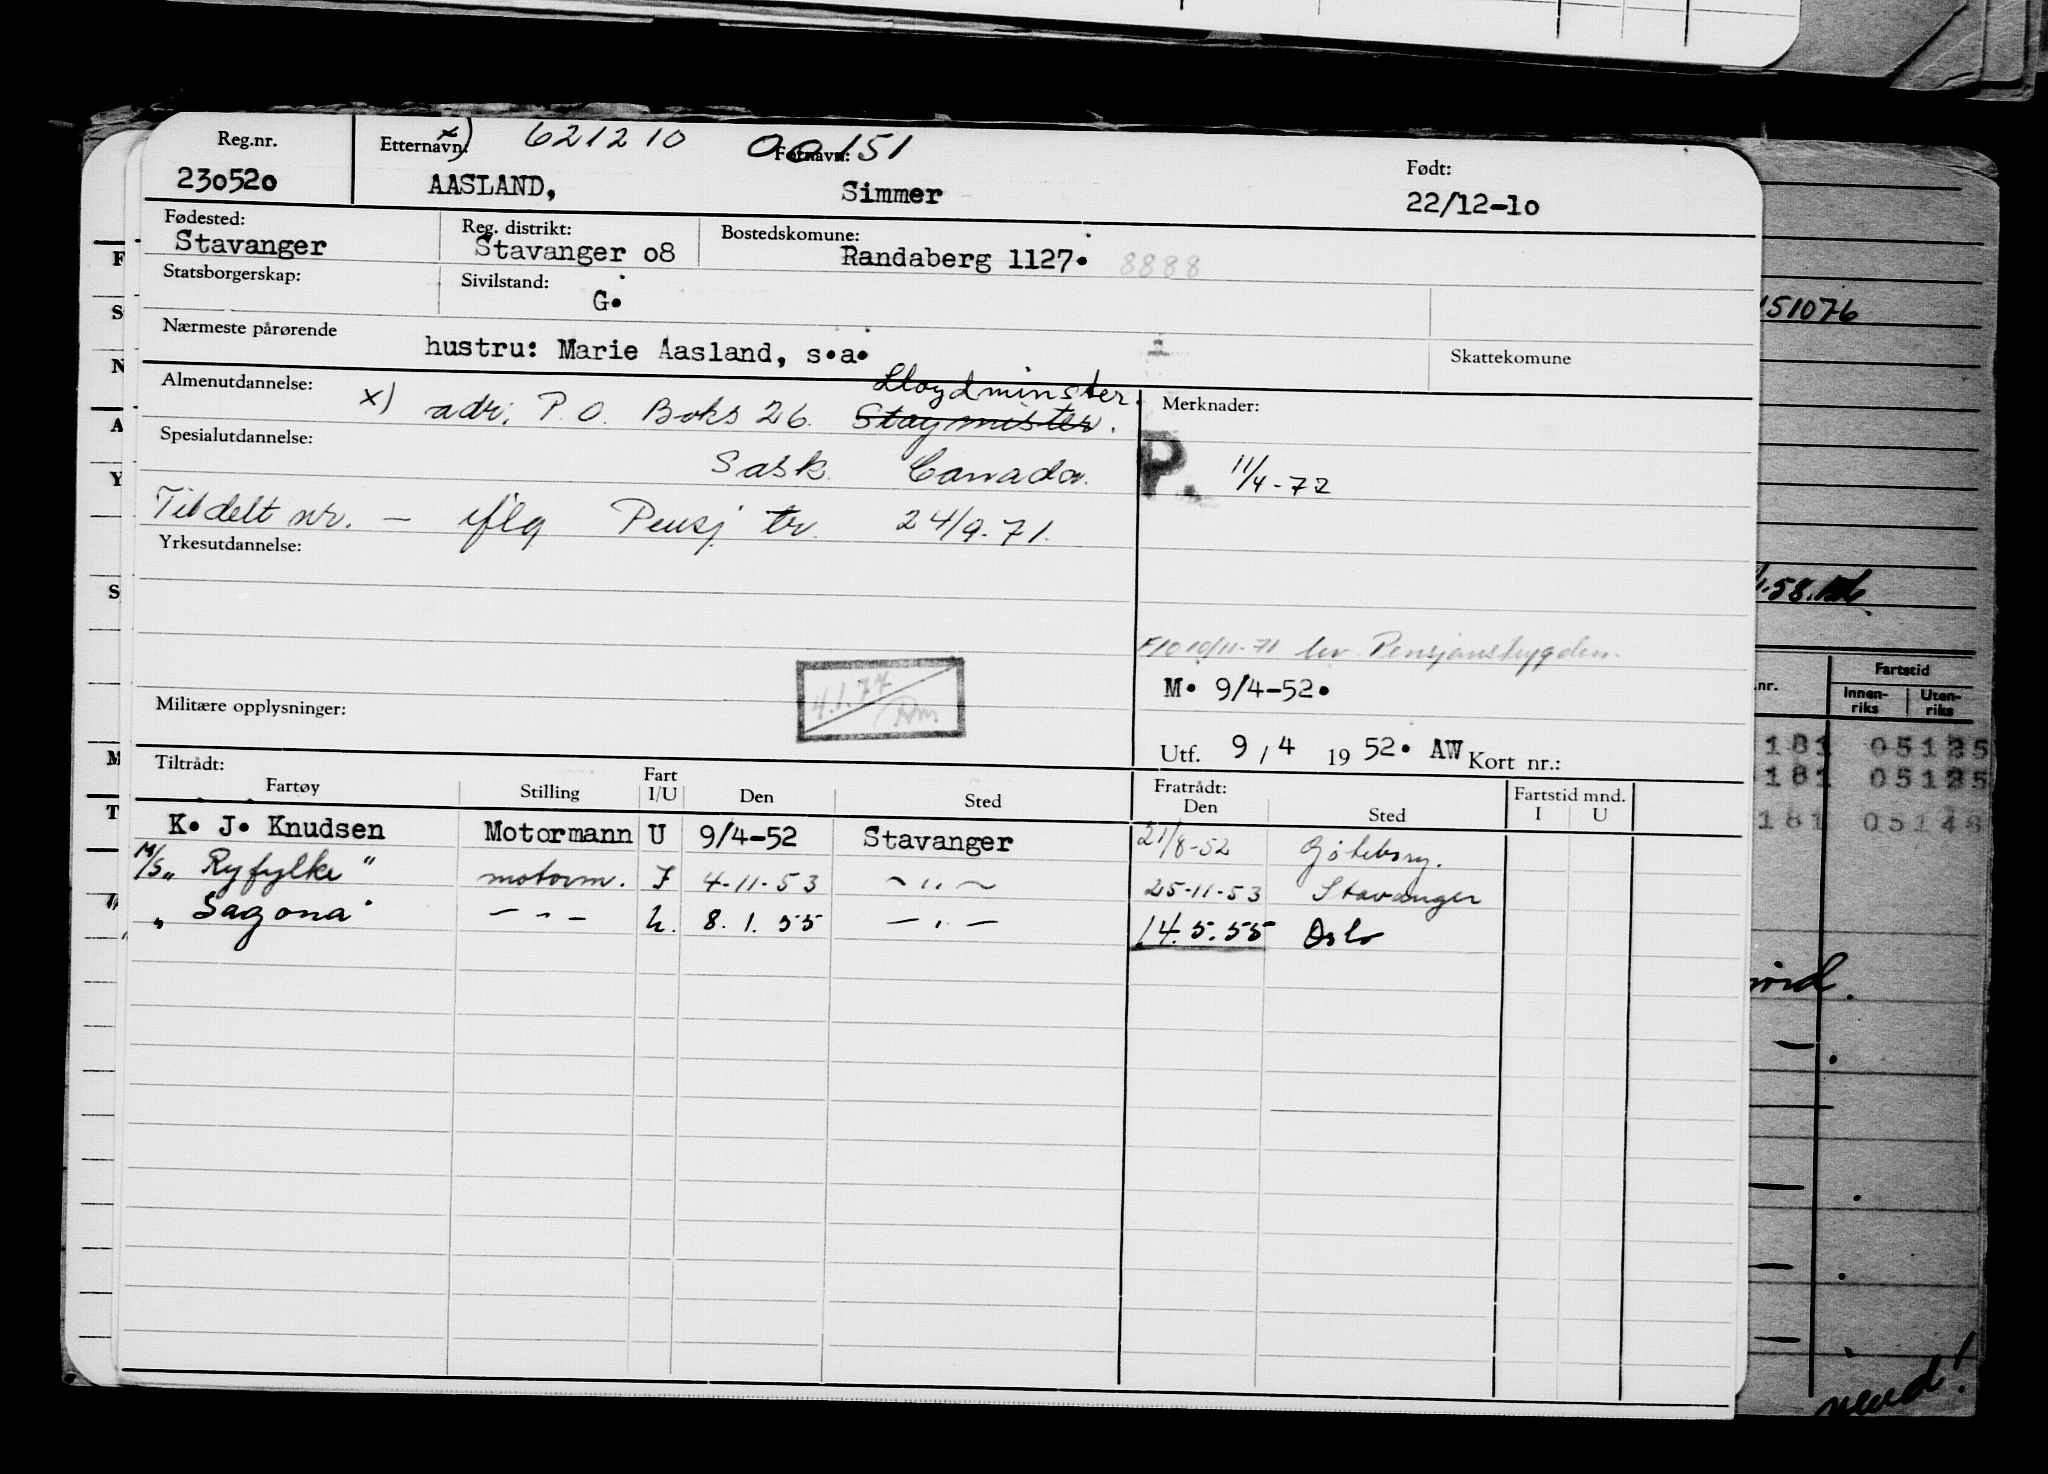 Reg.nr. Etternavn: x) 621210 00151 Fornavn: Født:
230520 AASLAND, Simmer 22/12-10
Fødested: Reg. distrikt: Bostedskomune:
Stavanger Stavanger 08 Randaberg 1127. 8888
Statsborgerskap: Sivilstand:
G.
Nærmeste pårørende
hustru: Marie Aasland, s.a. Skattekomune
Almenutdannelse: Lloydminster. Merknader:
x) adr. P.O. Boks 26. Staymister.
Spesialutdannelse:
Sask. Canada. P. 11/4-72
Tildelt nr. — iflg Pensj. tr. 24/9-71.
Yrkesutdannelse:
10/11-71 Pensjonstrygden.
M. 9/4-52.
4.1.77
Militære opplysninger:
Utf. 9/4 1952. AW Kort nr.:
Tiltrådt: Fratrådt:
Fartøy Stilling Fart I/U Den Sted Den Sted Fartstid mnd. I U
K. J. Knudsen Motormann U 9/4-52 Stavanger 21/8-52 Göteborg.
M/S „Ryfylke" motorm. I 4-11-53 — „ — 25-11-53 Stavanger
„ Sagona" — „ — U. 8.1.55 — „ — 14.5.55 Oslo
F
S
N
A
Y
S
M
T
151076
.nr. Fartstid
Innen-riks Uten-riks
181 05125
181 05125
181 05148